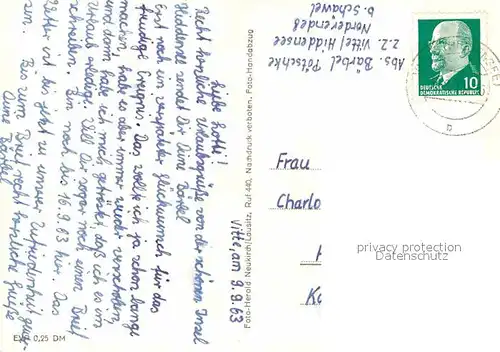 Liebe Lotte!
Recht herzliche Urlaubsgrüße von der schönen Insel
Hiddensee sendet Dir Deine Bärbel
Erst noch ein verspäteter Glückwunsch für das
freudige Ereignis. Das wollte ich ja schon lange
machen, habe es aber immer wieder verschoben,
und dann habe ich mich getröstet, daß ich es im
Urlaub erledige. Will Dir sogar noch einen Brief
schreiben. Bin noch bis 16.9.63 hier. Das
Wetter ist bis jetzt zu unserer Zufriedenheit
Bis zum Brief recht herzliche Grüße
Deine Bärbel
EVP 0,25 DM
Vitte, am 9.9.63
Foto-Herold Neukirch/Lausitz, Ruf 440, Nachdruck verboten. Foto-Handabzug
Abs. Bärbel Pötschke
z.Z. Vitte/Hiddensee
Norderende
b. Schawel
10
DEUTSCHE
DEMOKRATISCHE REPUBLIK
Frau
Charlo
privacy protection
VEDAMO.COM